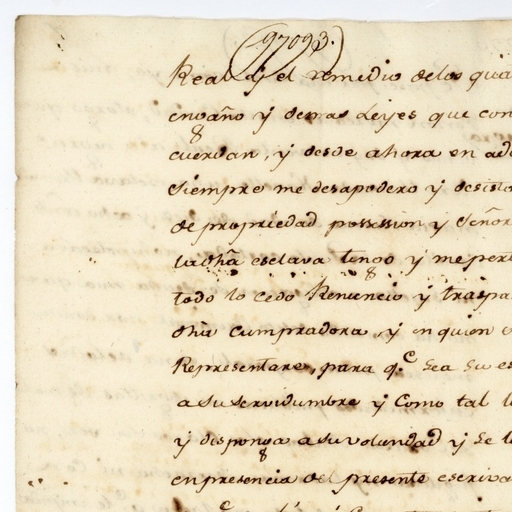 97093.
Real y el remedio delos qua
engaño y demas Leyes que con
cuerdan, y desde ahora en ade
siempre me desapodero y desisto
de propriedad possession y Señor
ladha esclava tengo y meper
todo lo cedo Renuncio y traspa
dha cumpradora, y en quien
Representare, para q.e Sea Su es
a su servidumbre y Como tal l
y disponga a su voluntad y Se l
en presencia del presente escriva